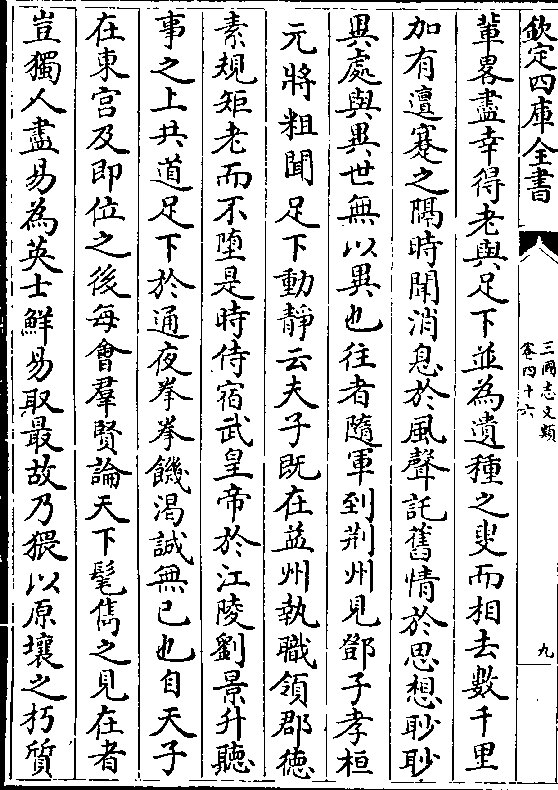 欽定四庫全書
三國志文類
卷四十六
九
輩畧盡幸得老與足下並為遺種之叟而相去數千里
加有邅蹇之隔時聞消息於風聲託舊情於思想眇眇
異處與異世無以異也往者隨軍到荆州見鄧子孝桓
元將粗聞足下動靜云夫子既在益州執職領郡德
素規矩老而不墮是時侍宿武皇帝於江陵劉景升聽
事之上共道足下於通夜拳拳饑渴誠無已也自天子
在東宫及即位之後每會羣賢論天下髦儁之見在者
豈獨人盡易為英士鮮易取最故乃猥以原壤之朽質